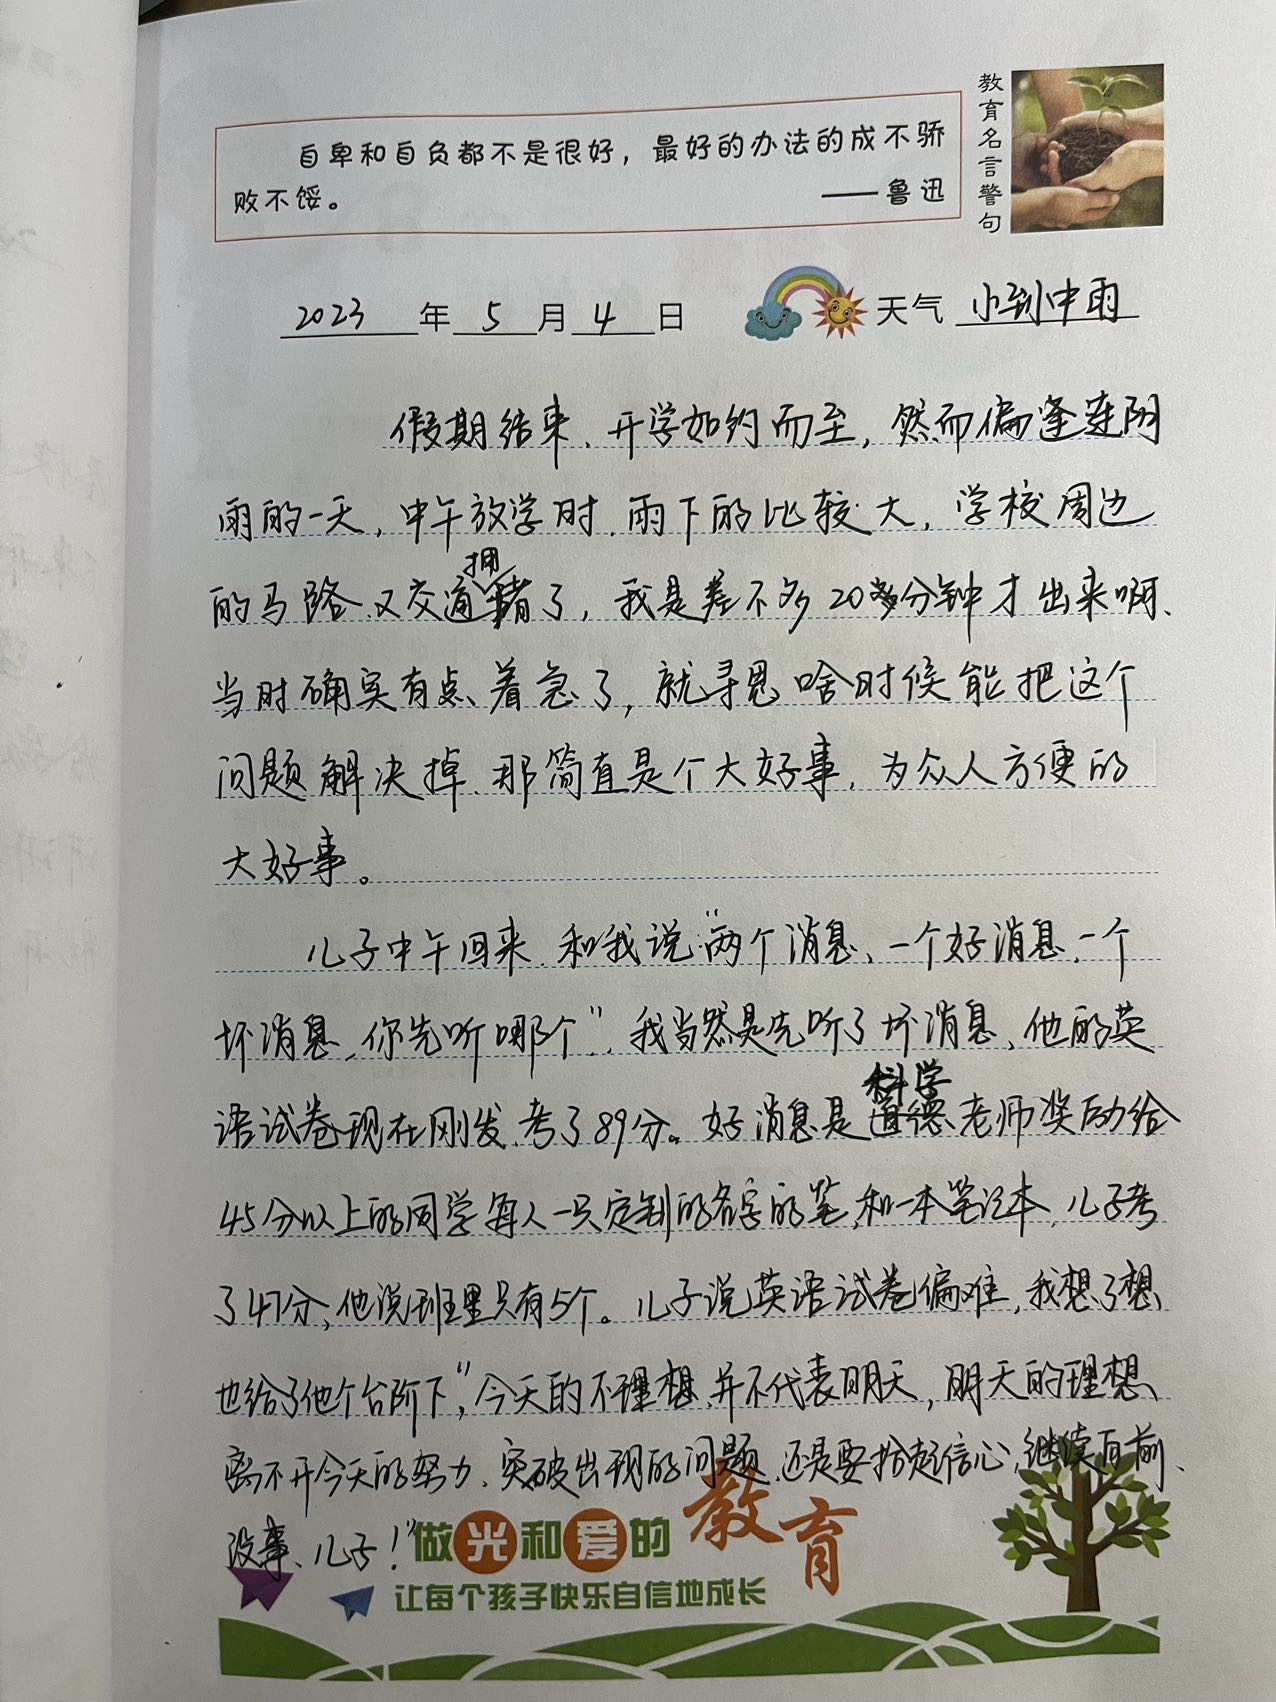 教育名言警句
自卑和自负都不是很好，最好的办法的成不骄
败不馁。
——鲁迅
2023年5月4日 天气 小到中雨
假期结束、开学如约而至，然而偏逢连阴
雨的一天，中午放学时.雨下的比较大，学校周边
的马路.又交通拥堵了，我是差不多20多分钟才出来啊、
当时确实有点着急了，就寻思啥时候能把这个
问题解决掉、那简直是个大好事，为众人方便的
大好事。
儿子中午回来.和我说“两个消息、一个好消息.一个
坏消息、你先听哪个”，我当然是先听了坏消息、他的英
语试卷现在刚发、考了89分。好消息是科学老师奖励给
45分以上的同学每人一只定制的名字的笔，和一本笔记本，儿子考
了47分、他说班里只有5个。儿子说英语试卷偏难，我想了想、
也给了他个台阶下，“今天的不理想、并不代表明天，明天的理想、
离不开今天的努力、突破出现的问题、还是要拾起信心，继续向前、
没事、儿子！”
做光和爱的教育
让每个孩子快乐自信地成长